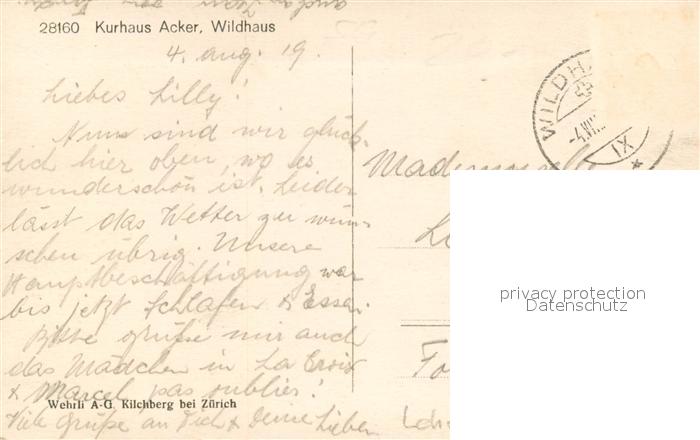 28160 Kurhaus Acker, Wildhaus
4. Aug. 19.
Liebes Lilly!
Nun sind wir glück-
lich hier oben, wo es
wunderschön ist. Leider
lässt das Wetter zu wün-
schen übrig. Unsere
Hauptbeschäftigung war
bis jetzt Schlafen & Essen.
Bitte grüße mir auch
das Mädchen in La Croix
& Marcel pas oublier!
Wehrli A-G. Kilchberg bei Zürich
Viele Grüße an Dich & Deine Lieben
WILDH
XI
Mademoiselle
privacy protection
Datenschutz